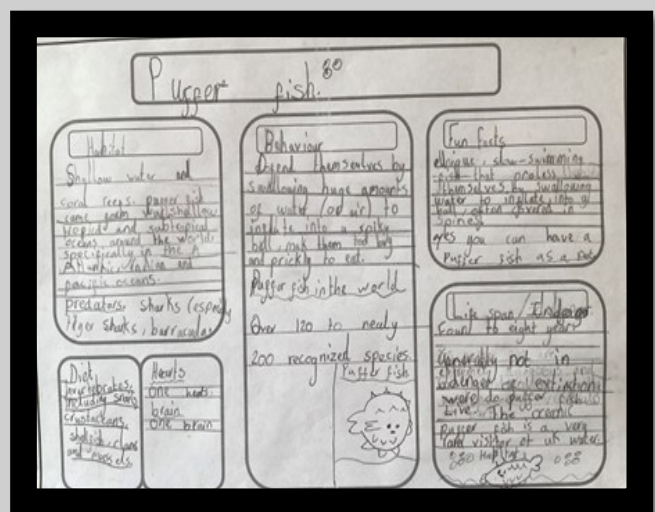 Puffer fish.
Habitat
Shallow water and
coral reefs: puffer fish
come from shallow
tropical and subtropical
oceans around the world
specifically in the
Atlantic, Indian and
pacific oceans.
predators, sharks
tiger sharks, barracudas
Diet
invertebrates,
including snails
crustaceans,
and mussels.
Hearts
one heart.
brain
one brain
Behaviour
Defend themselves by
swallowing huge amounts
of water (or air) to
inflate into a spiky
ball, mak them too big
and prickly to eat.
Puffer fish in the world
Over 120 to nealy
200 recognized species.
Puffer fish
Fun facts
slow-swimming
fish that
themselves by swallowing
water to inflate into a
ball often covered in
spines.
yes you can have a
Puffer fish as a pet
Life span/
Four to eight years
Generally not in
danger of extinction
were do puffer fish
live. The oceanic
puffer fish is a very
rare visitor of uk water.